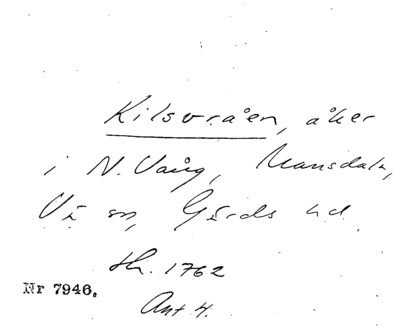 Kilsvråen, åker
i N. Vång, Mansdala,
Vä sn, Gärds hd.
Sk. 1762
Nr 7946.
Ant. 4.